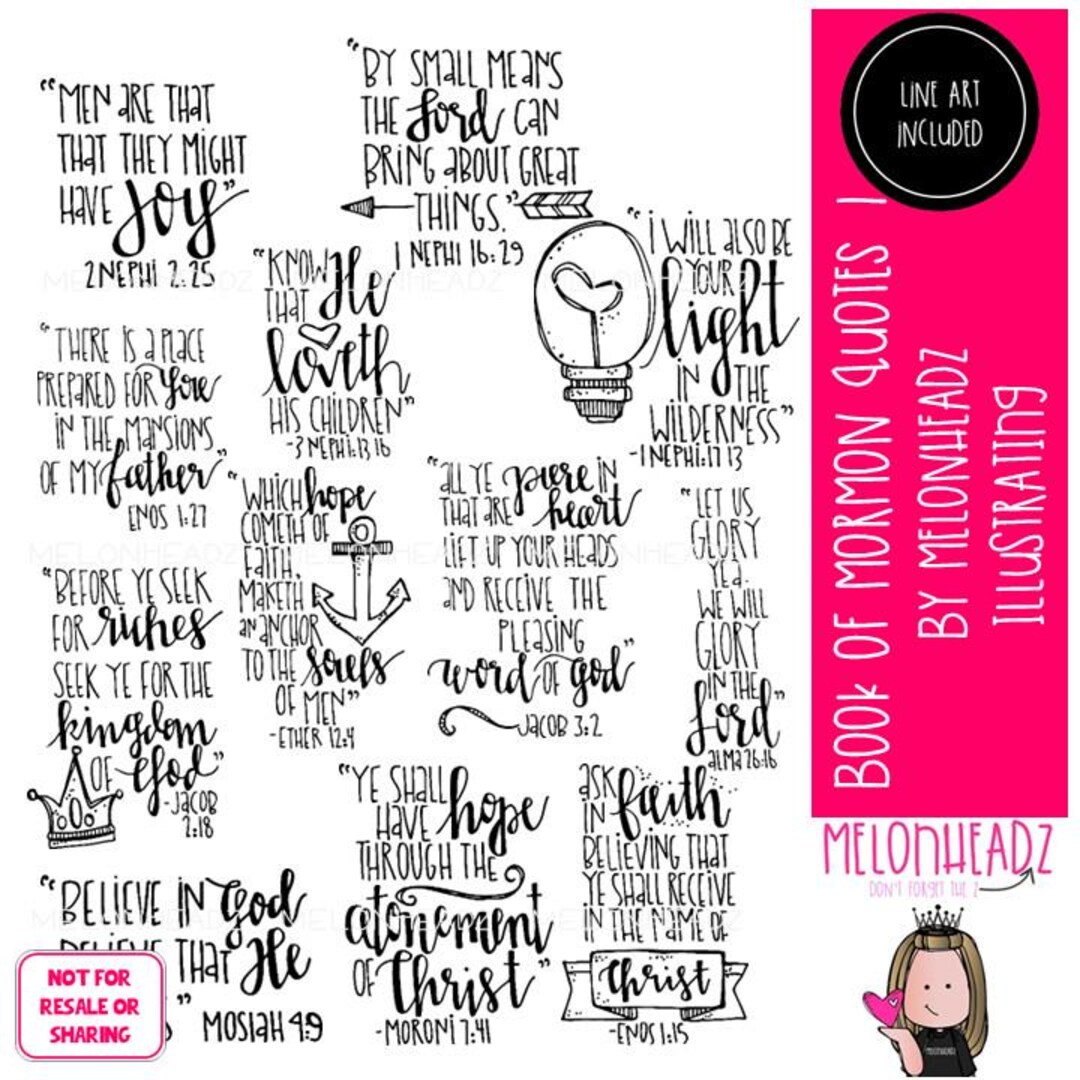 "MEN ARE THAT
THAT THEY MIGHT
HAVE Joy"
2 NEPHI 2:25
"BY SMALL MEANS
THE Lord CAN
BRING ABOUT GREAT
THINGS."
1 NEPHI 16:29
"KNOW He
THAT
loveth
HIS CHILDREN"
-3 NEPHI:13 16
"I WILL ALSO BE
YOUR
light
IN THE
WILDERNESS"
-1 NEPHI:17 13
"THERE IS A PLACE
PREPARED FOR You
IN THE MANSIONS
OF MY father"
ENOS 1:27
"WHICH hope
COMETH OF
FAITH,
MAKETH
AN ANCHOR
TO THE souls
OF MEN"
-ETHER 12:4
"ALL YE pure IN
THAT ARE heart
LIFT UP YOUR HEADS
AND RECEIVE THE
PLEASING
word OF god"
JACOB 3:2
"LET US
GLORY
YEA.
WE WILL
GLORY
IN THE
Lord"
ALMA 26:16
"BEFORE YE SEEK
FOR riches
SEEK YE FOR THE
kingdom
OF God"
-JACOB
2:18
"YE SHALL hope
HAVE
THROUGH THE
atonement
OF Christ"
-MORONI 7:41
ASK faith
IN
BELIEVING THAT
YE SHALL RECEIVE
IN THE NAME OF
Christ
-ENOS 1:15
"BELIEVE IN God
BELIEVE THAT He
"
MOSIAH 4:9
NOT FOR
RESALE OR
SHARING
LINE ART
INCLUDED
BOOK OF MORMON QUOTES 1
BY MELONHEADZ
ILLUSTRATING
MELONHEADZ
DON'T FORGET THE Z
MELONHEADZ
MELONHEADZ MELONHEADZ MELONHEADZ
MELONHEADZ MELONHEADZ MELONHEADZ
MELONHEADZ MELONHEADZ MELONHEADZ